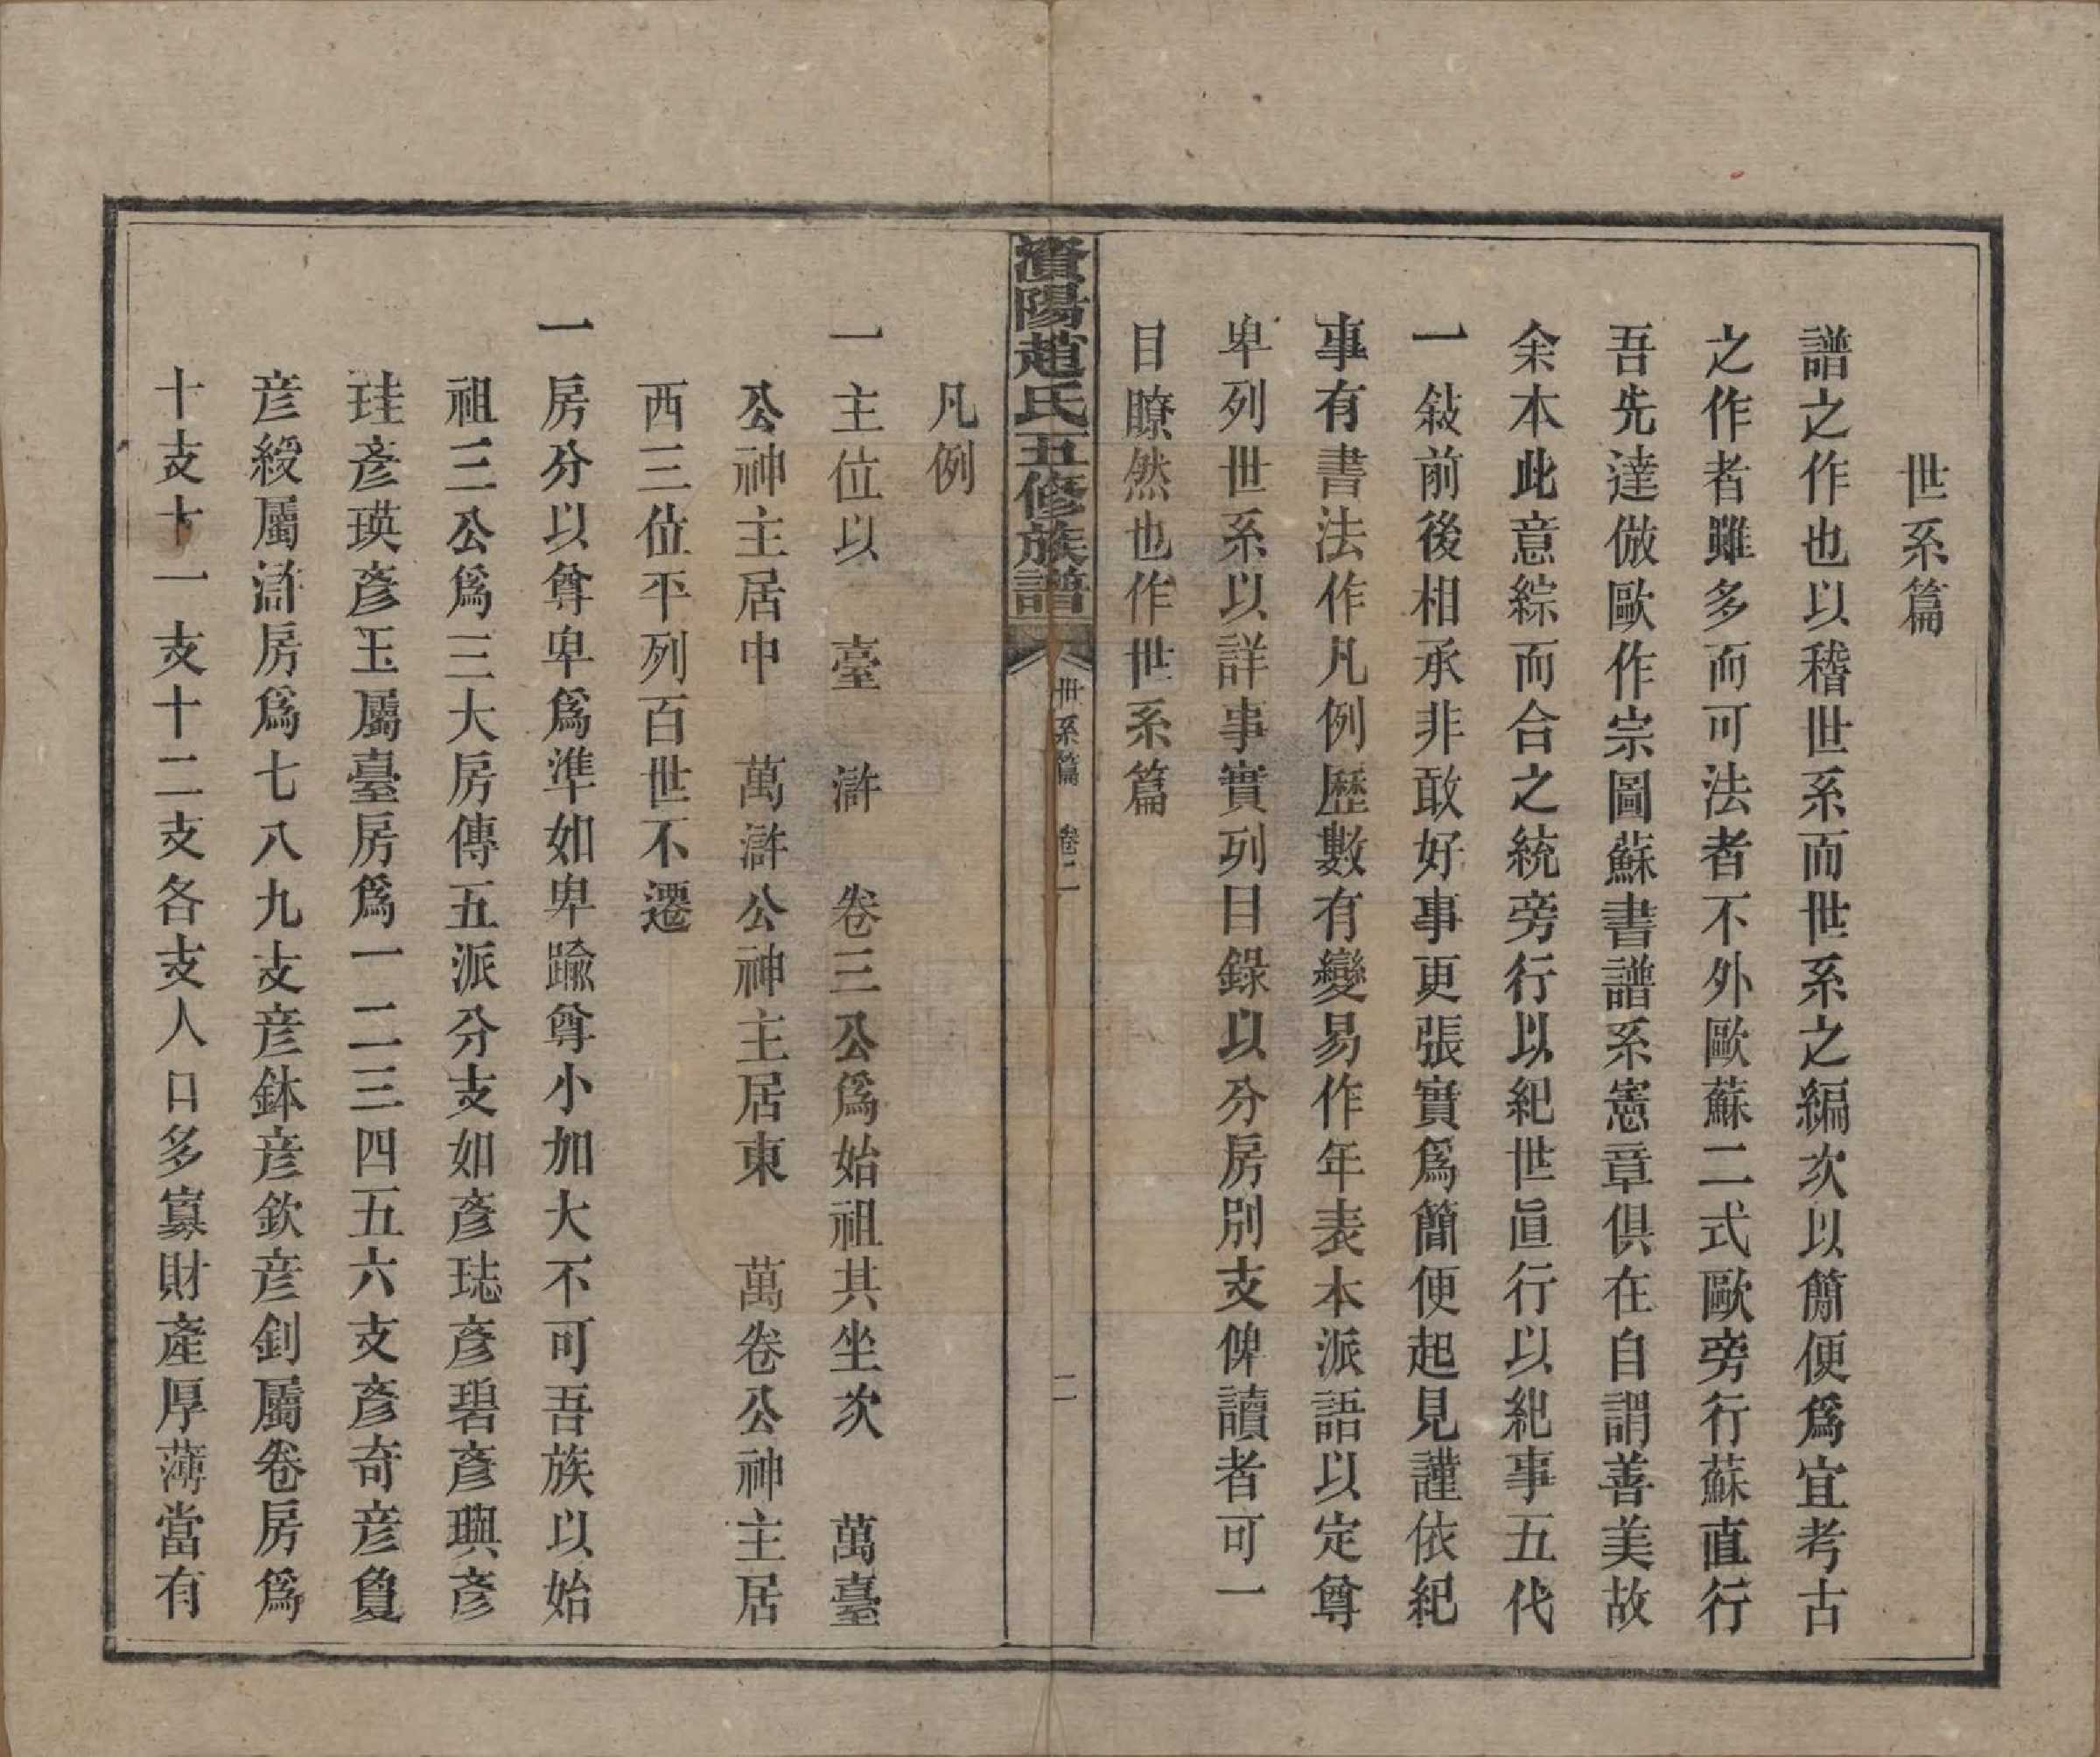 世系篇
譜之作也以稽世系而世系之編次以簡便爲宜考古
之作者雖多而可法者不外歐蘇二式歐旁行蘇直行
吾先達倣歐作宗圖蘇書譜系憲章俱在自謂善美故
余本此意綜而合之統旁行以紀世直行以紀事五代
一敍前後相承非敢好事更張實爲簡便起見謹依紀
事有書法作凡例歷數有變易作年表本派語以定尊
卑列世系以詳事實列目錄以分房別支俾讀者可一
目瞭然也作世系篇
濱陽趙氏五修族譜 世系篇 卷二 二
凡例
一主位以 臺 滸 卷三公爲始祖其坐次 萬臺
公神主居中 萬滸公神主居東 萬卷公神主居
西三位平列百世不遷
一房分以尊卑爲準如卑踰尊小加大不可吾族以始
祖三公爲三大房傳五派分支如彥珤彥碧彥璵彥
珪彥瑛彥玉屬臺房爲一二三四五六支彥奇彥負
彥綬屬滸房爲七八九支彥鉢彥欽彥釗屬卷房爲
十支十一支十二支各支人口多寡財產厚薄當有